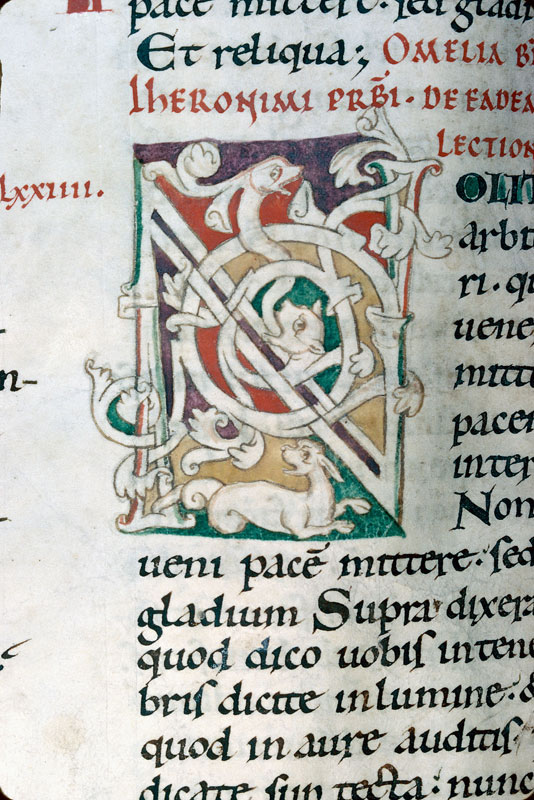 pacē mittere. sed gladi
Et reliqua; OMELIA B
IhERONIMI PRB̄I. DE EADE
LECTION
lxxiiii.
NOLIT
arbit
ri. q
uene
mitte
pacem
inter
Non
ueni pacē mittere. sed
gladium Supra dixera
quod dico uobis in tene
bris dicite in lumine. &
quod in aure auditis
dicate sup tecta: nunc